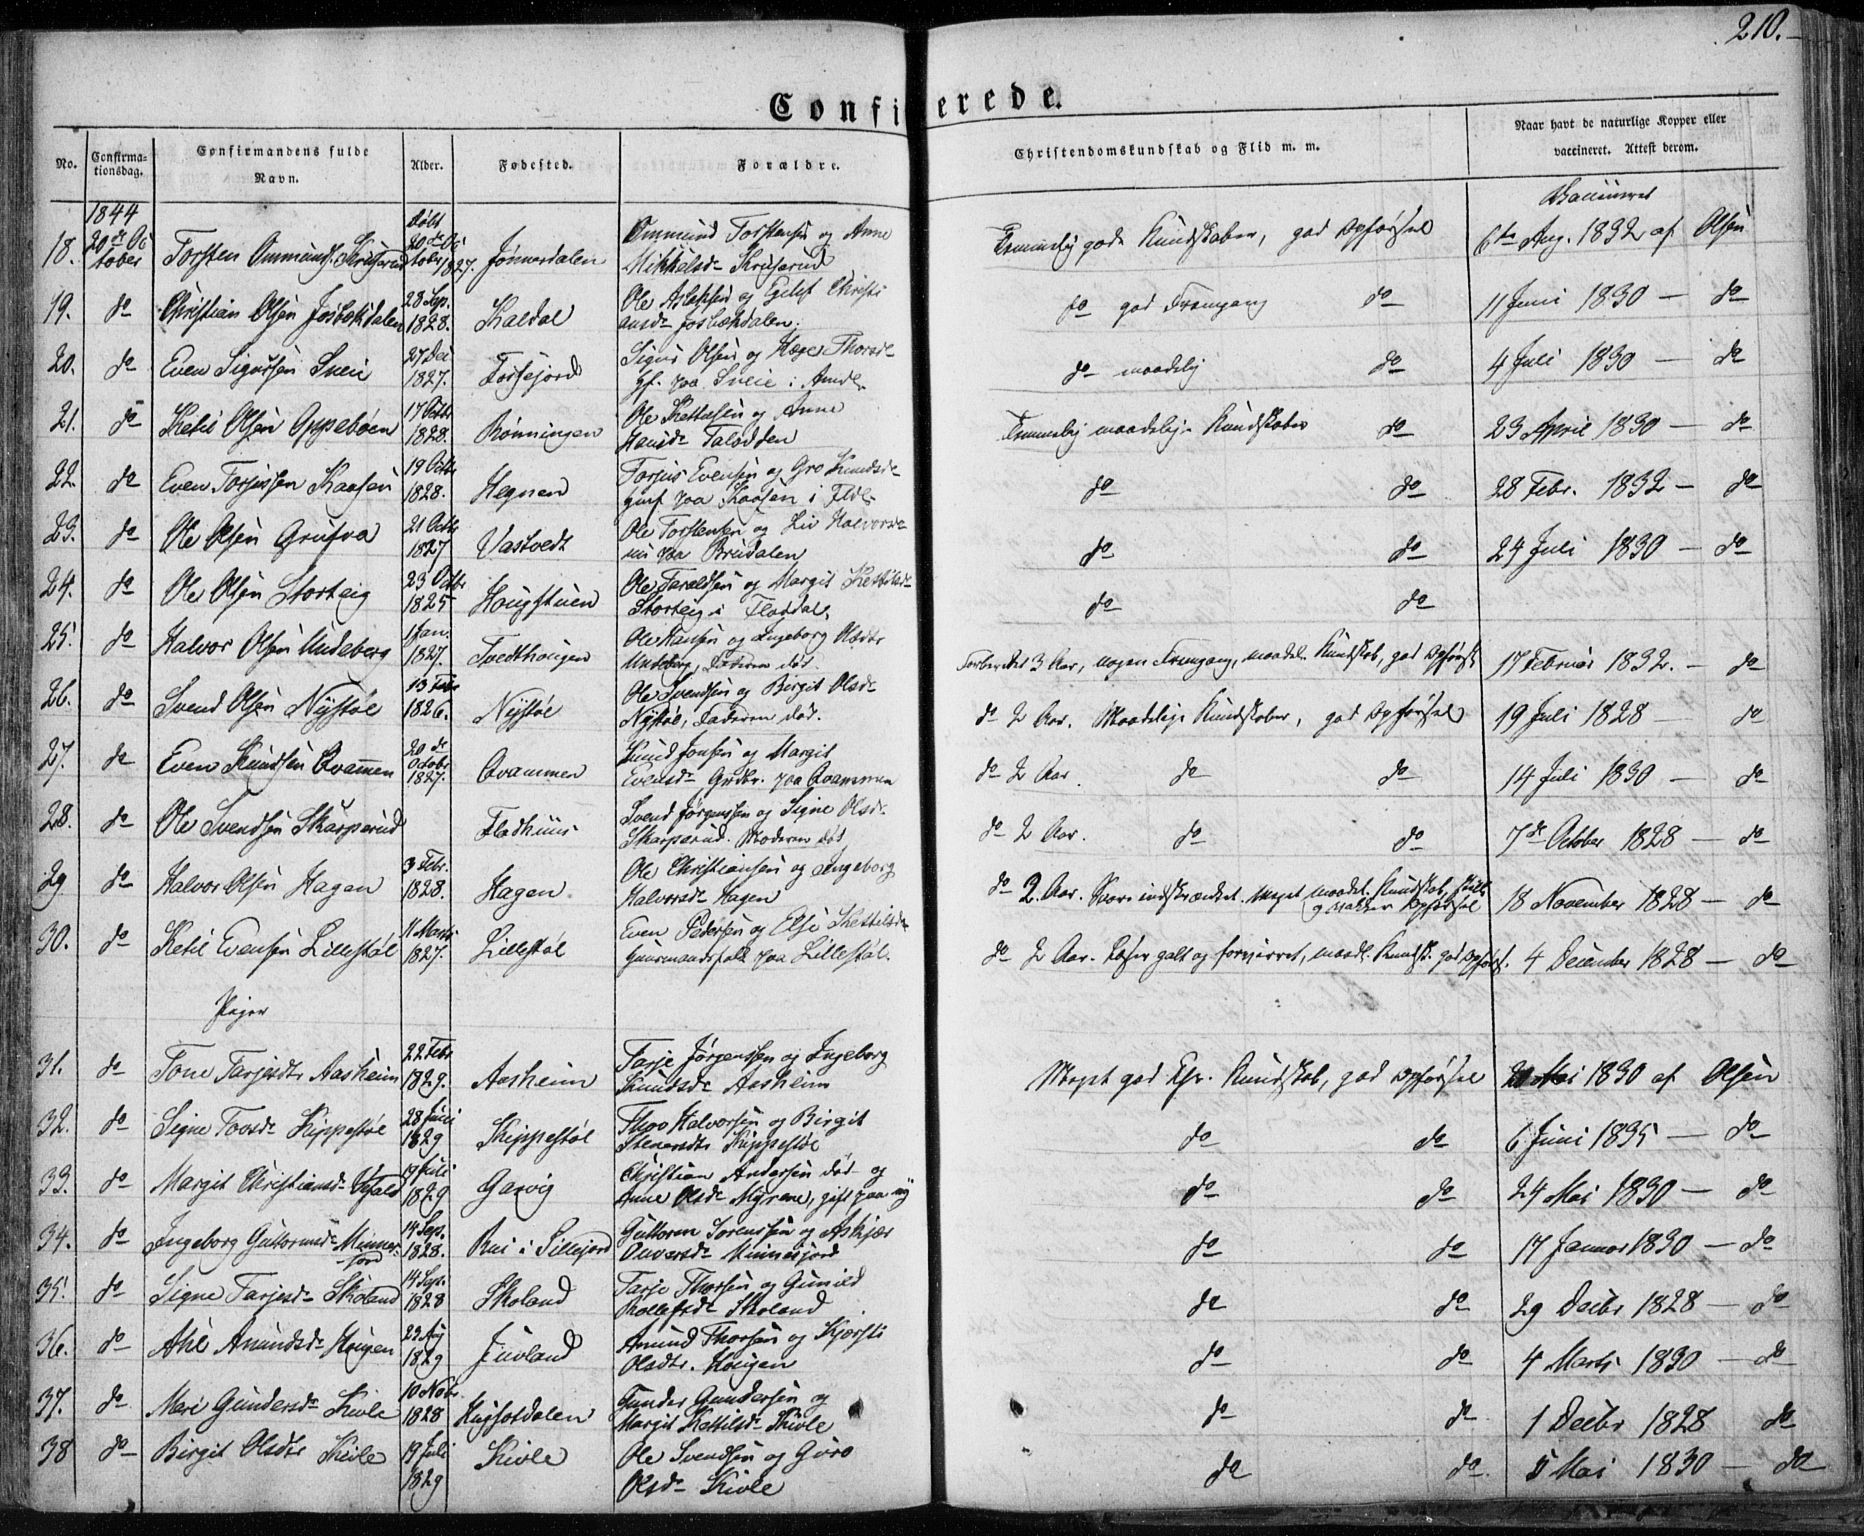 210.
Confirmerede.
No.
Confirma-
tionsdag.
Confirmandens fulde
Navn.
Alder.
Fødested.
Forældre.
Christendomskundskab og Flid m. m.
Naar havt de naturlige Kopper eller
vaccineret. Attest derom.
1844
Døbt
Vaccineret
18. 20de Oc tober Torsten Ommunds. 20de Oc tober 1827. Jønnerdalen Ommund Torstensen og Anne Mikkelsdr Temmelig gode Kundskaber, god Opførsel 6te Aug. 1832 af Olsen
19. do Christian Olsen Josbækdalen 28 Sep. 1828. Kaldal Ole Aslaksen og Egelef Christi ansdr Josbækdalen. do god Fremgang do 11 Juni 1830 — do
20. do Even Sigursen Sneie 27 Dec 1827. Forsejord Sigur Olsen og Hæge Thorsdr Gf. paa Sneie i Amdl. do maadelig do 4 Juli 1830 — do
21. do Ketil Olsen Oppebøen 17 Octbr 1828. Rønningen Ole Kettilsen og Anne Hansdr Talodden Temmelig maadelige Kundskaber do 23 April 1830 — do
22. do Even Torjussen Kaasen 19 Octbr 1828. Hegnen Torjus Evensen og Gro Knudsdr paa Kaasen i Fldl. do do 28 Febr. 1832 — do
23. do Ole Olsen Grufva 21 Octbr 1827 Vastvedt Ole Torstensen og Liv Halvorsdr nu paa Brudalen do do 24 Juli 1830 — do
24. do Ole Olsen Storteig 23 Octbr 1825 Hougstuen Ole Taraldsen og Margit Kettilsdr Storteig i Flatdal. do do
25. do Halvor Olsen Undeberg 1 Jan. 1827. Tvedthougen Ole Hansen og Ingeborg Olsdtr Undeberg, Faderen død. Forberedet 3 Aar, nogen Fremgang, maadel. Kundskab, god Opførsel 17 Februar 1832. — do
26. do Svend Olsen Nystøl 13 Febr 1826. Nystøl Ole Svendsen og Birgit Olsdr Nystøl, Faderen død. do 2 Aar. Maadelige Kundskaber, god Opførsel 19 Juli 1828 — do
27. do Even Knudsen Qvammen 20de Octobr 1827. Qvammen Knud Jonsen og Margit Evensdr Grdbr. paa Qvammen do 2 Aar. do do 14 Juli 1830 — do
28. do Ole Svendsen Skarperud Fladhuus Svend Jørgensen og Signe Olsdr Skarperud. Moderen død do 2 Aar. do do 7de October 1828 — do
29 do Halvor Olsen Hagen 3 Febr. 1828. Hagen Ole Christiansen og Ingeborg Halvorsdr Hagen do 2 Aar. Svare indskrænket. Meget maadel. Kundskab, stille og Opførsel 18 November 1828 — do
30. do Ketil Evensen Lillestøl 11 Marts 1827. Lillestøl Even Pedersen og Else Kettilsdr Huusmandsfolk paa Lillestøl. do 2 Aar. Læser galt og forvirret, maadl. Kundsk. god Opførsel. 4 December 1828 — do
Piger
31. do Tone Tarjesdtr Aasheim 22 Febr 1829. Aasheim Tarje Jørgensen og Ingeborg Knudsdr Aasheim Meget god Chr. Kundskab, god Opførsel Mai 1830 af Olsen
32. do Signe Tovsdr Kippestøl 28 Juni 1829 Skippestøl Thov Halvorsen og Birgit Kippestøl do do 6 Juni 1835 — do
33. do Margit Christiansdr 19 Juli 1829 Garvig Christian Andersen død og Anne Olsdr Myrane, gift paa ny do do 24 Mai 1830 — do
34. do Ingeborg Guttormsdr Minnes- fjord 14 Sep. 1828. Rui i Sillejord Guttorm Sørensen og Askjær Onversdr Minnesfjord do do 17 Januar 1830 — do
35. do Signe Tarjesdr Skoland 14 Sep. 1828 Skoland Tarje Thorsen og Gunild Rollefsdr Skoland do do 29 Decbr 1828 — do
36. do Amundsdr Hougen 23 Aug 1829 Juvland Amund Thorsen og Kjersti Olsdtr. Hougen do do 4 Marts 1830 — do
37. do Mari Gundersdr Kivle 10 Novr. 1828 Gunder Gundersen og Margit Kettilsdr Kivle do do 1 Decbr 1828 do
38 do Birgit Olsdtr Kivle 19 Juli 1829 Kivle Ole Svendsen og Guro Olsdr Kivle do do 5 Mai 1830 — do